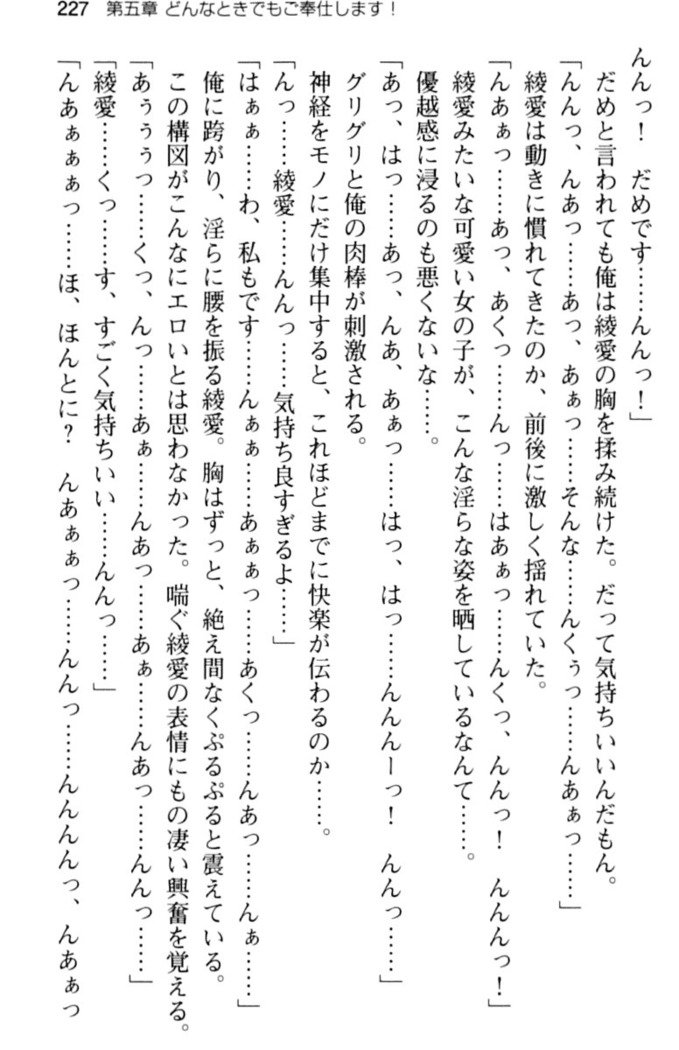 227　第五章 どんなときでもご奉仕します！
んんっ！　だめです……んんっ！」
だめと言われても俺は綾愛の胸を揉み続けた。だって気持ちいいんだもん。
「んんっ、んあっ……あっ、あぁっ……そんな……んくぅっ……んあぁっ……」
綾愛は動きに慣れてきたのか、前後に激しく揺れていた。
「んあぁっ……あっ、あくっ……んっ……はあぁっ……んくっ、んんっ！　んんんっ！」
綾愛みたいな可愛い女の子が、こんな淫らな姿を晒しているなんて……。
優越感に浸るのも悪くないな……。
「あっ、はっ……あっ、んあ、あぁっ……はっ、はっ……んんんーっ！　んんっ……」
グリグリと俺の肉棒が刺激される。
神経をモノにだけ集中すると、これほどまでに快楽が伝わるのか……。
「んっ……綾愛……んんっ……気持ち良すぎるよ……」
「はぁぁ……わ、私もです……んぁぁ……あぁぁっ……あくっ……んあっ……んぁ……」
俺に跨がり、淫らに腰を振る綾愛。胸はずっと、絶え間なくぷるぷると震えている。
この構図がこんなにエロいとは思わなかった。喘ぐ綾愛の表情にもの凄い興奮を覚える。
「あぅぅぅっ……くっ、んっ……あぁ……んあっ……あぁ……んあっ……んんっ……」
「綾愛……くっ……す、すごく気持ちいい……んんっ……」
「んあぁぁぁっ……ほ、ほんとに？　んあぁぁっ……んんっ……んんんんっ、んあぁっ